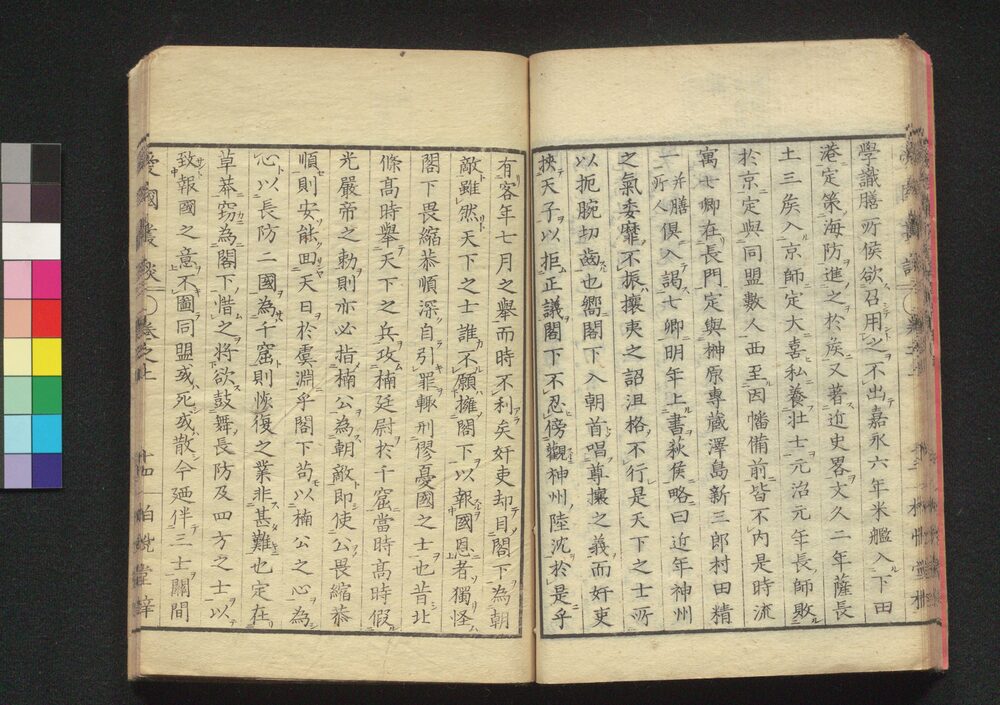 學識膳所侯欲召用之不出嘉永六年米艦入下田
港定策海防進之於侯又著近史畧文久二年薩長
土三侯入京師定大喜私養壯士元治元年長師敗
於京定與同盟數人西至因幡備前皆不內是時流
寓七卿在長門定與榊原專藏澤島新三郎村田精
一并膳所人俱入謁七卿明年上書萩侯略曰近年神州
之氣委靡不振攘夷之詔沮格不行是天下之士所
以扼腕切齒也嚮閤下入朝首唱尊攘之義而奸吏
挾天子以拒正議閤下不忍傍觀神州陸沈於是乎
有客年七月之舉而時不利矣奸吏却目閤下為朝
敵雖然天下之士誰不願擁閤下以報國恩者獨怪
閤下畏縮恭順深自引罪輙刑僇憂國之士也昔北
條高時舉天下之兵攻楠廷尉於千窟當時高時假
光嚴帝之勅則亦必指楠公為朝敵即使公畏縮恭
順則安能回天日於虞淵乎閤下苟以楠公之心為
心以長防二國為千窟則恢復之業非甚難也定在
草莽竊為閤下惜之將欲鼓舞長防及四方之士以
致報國之意不圖同盟或死或散今廼伴三士關間
愛國叢談 卷之上 十四 柏悅堂梓